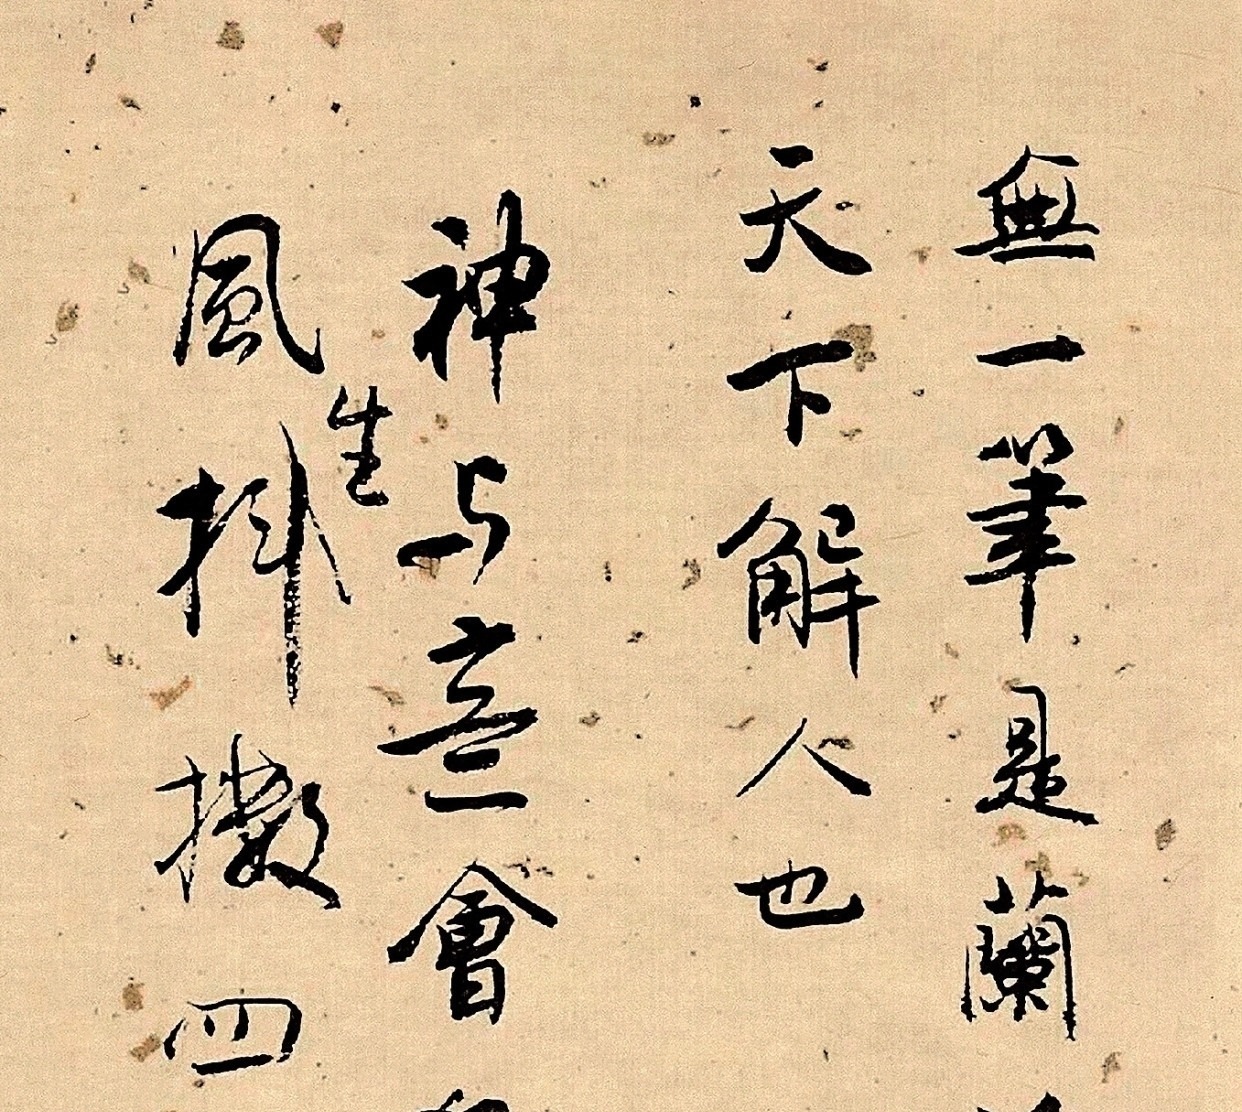 無一筆是蘭
天下解人也
神与意會
生
風斜撇四